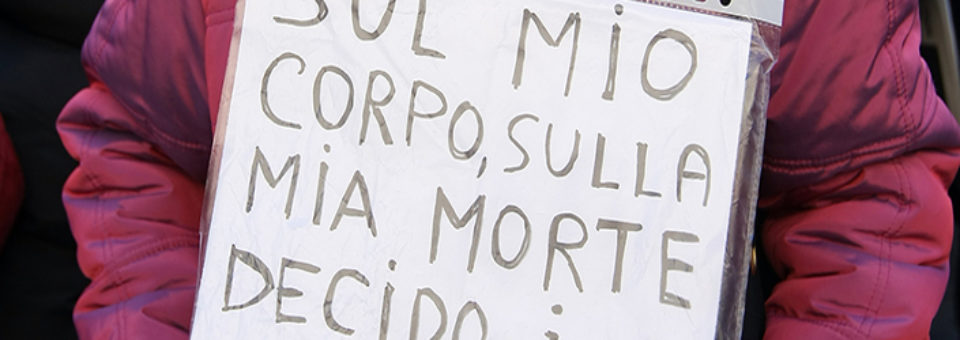 SUL MIO
CORPO, SULLA
MIA MORTE
DECIDO